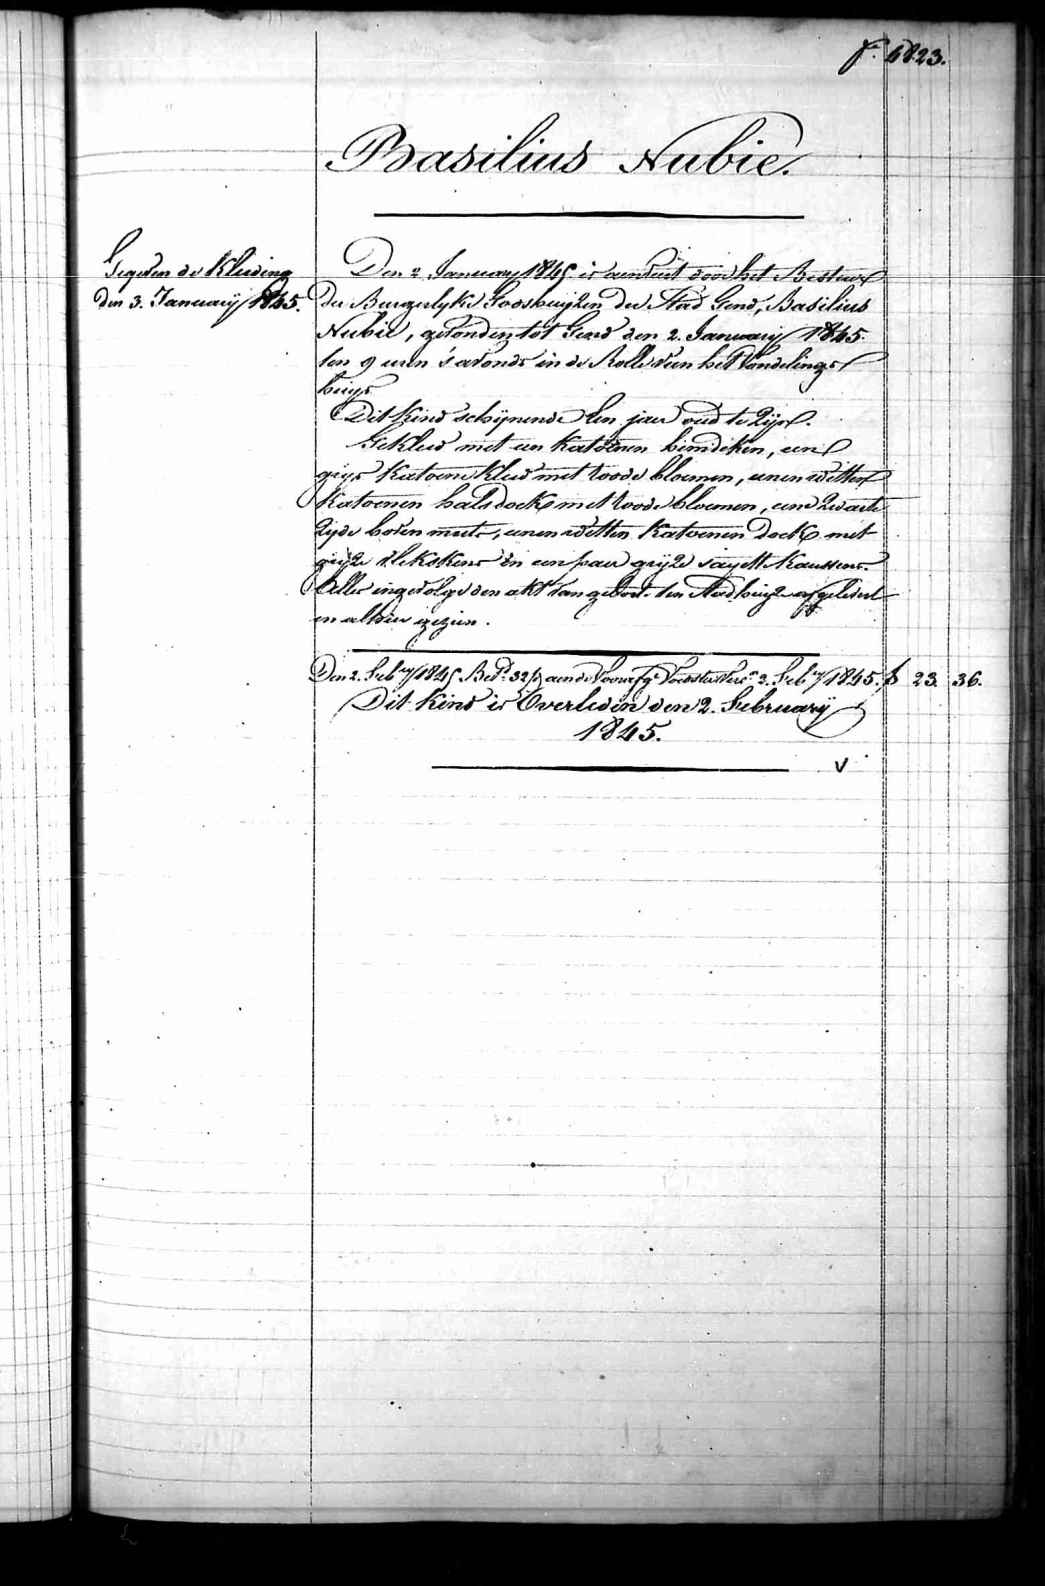 f. 1823.
Basilius Nubie.
Gegeven de Kleding
den 3. January 1845.
Den 2 January 1845 is aenveird door het Bestuer
der Burgerlyke Godshuijzen der Stad Gend, Basilius
Nubie, gevonden tot Gend den 2. January 1845.
ten 9 uren 's avonds in de Rolle van het Vondelings
huijs
Dit kind schijnende Een jaer oud te Zijn.
Gekleed met een Katoenen hemdeken, een
grijs Katoene kleed met roode bloemen, eenen witten
Katoenen halsdoek met roode bloemen, eene Zwarte
Zijde boven muts, eenen witten Katoenen doek met
grijze vlekskens en een paer grijze sayette Kaussens.
Alles ingevolge den akt van geboorte ten Stadhuize afgelevert
en alhier gezien.
Den 2. Feb.ry 1845 Bet. 32 aen de Voorsz. Voedster 2. Feb.ry 1845. 23. 36.
Dit kind is Overleden den 2. February
1845.
V